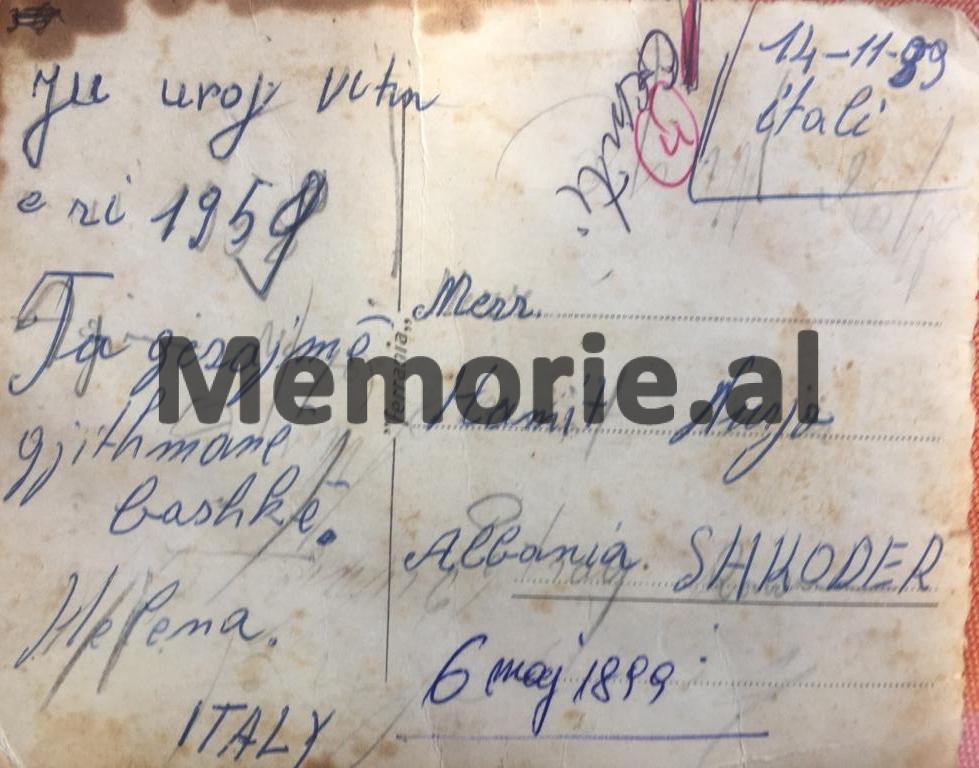 Ju uroj Vitin
e ri 1958
Ta gëzojmë
gjithmonë
bashkë.
Helena.
ITALY
14-11-99
itali
"Ferrania"
Merr.
Hamit
Albania. SHKODER
6 maj 1899
Memorie.al